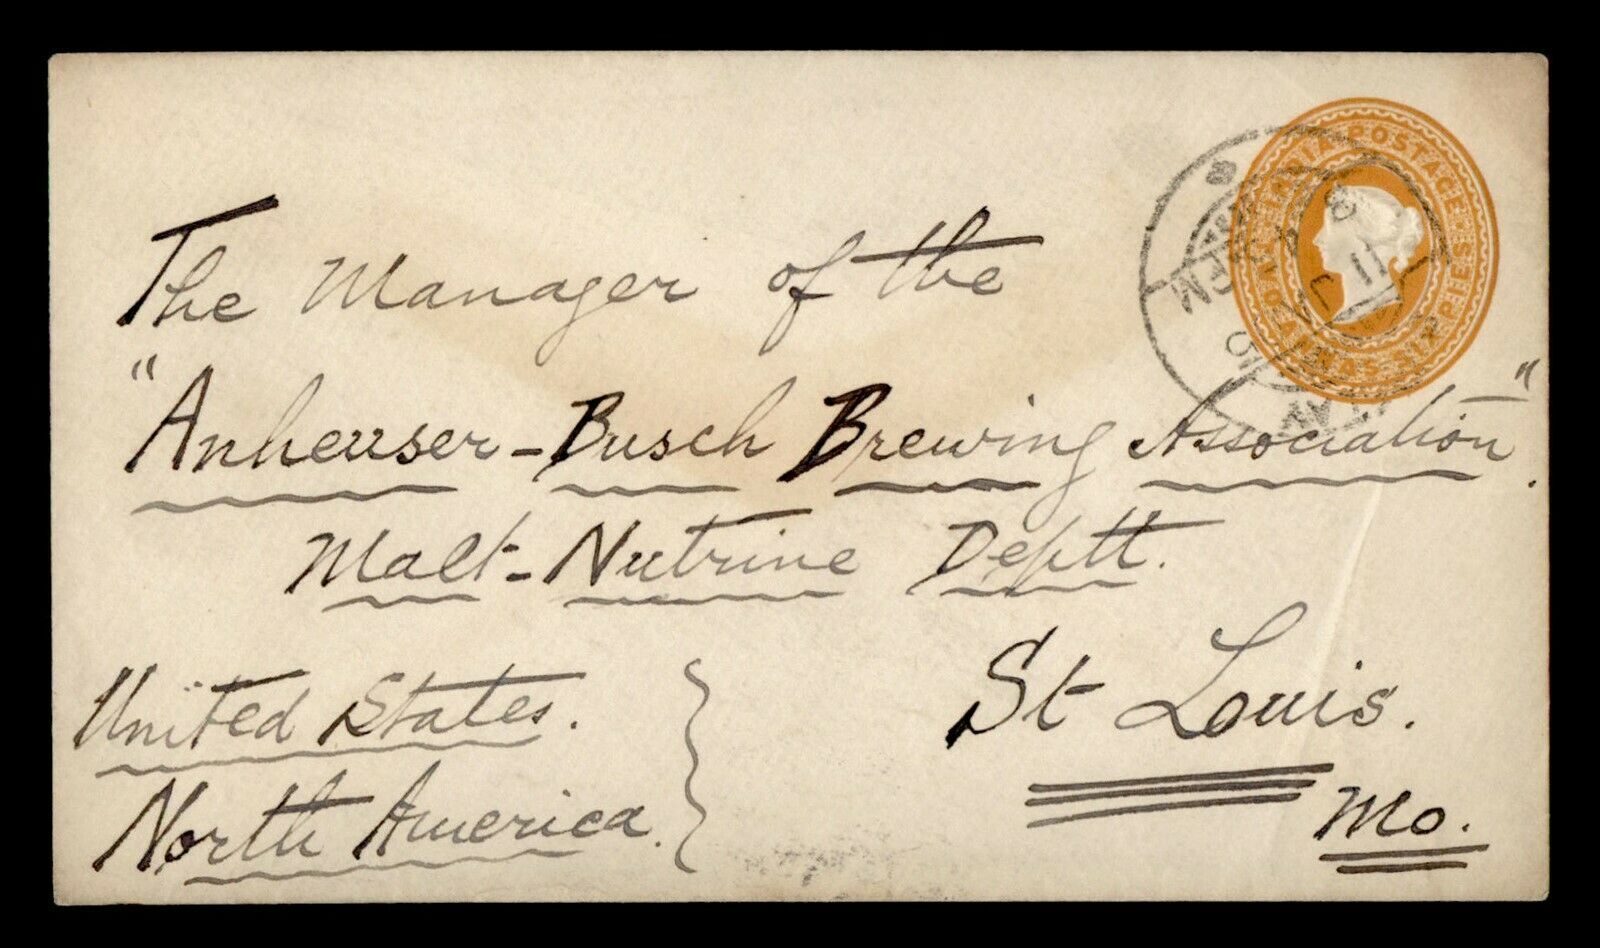 INDIA POSTAGE
TWO ANNAS SIX PIES
The Manager of the
"Anheuser-Busch Brewing Association".
Malt-Nutrine Deptt.
St Louis.
Mo.
United States.
North America.